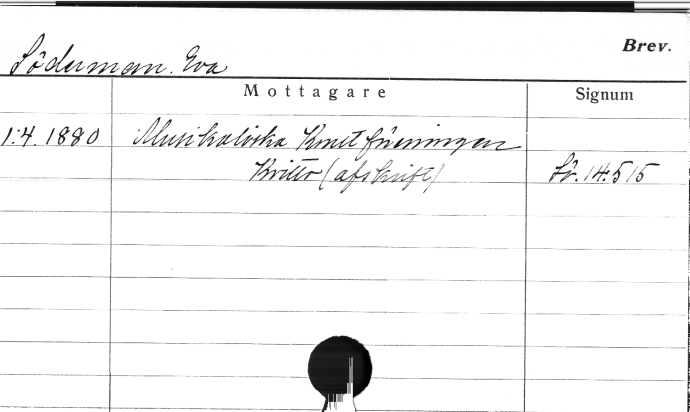 Brev.
Söderman. Eva
Mottagare
Signum
1.4. 1880 Musikaliska Konstföreningen
Kvitto (afskrift) Sv. 14.515